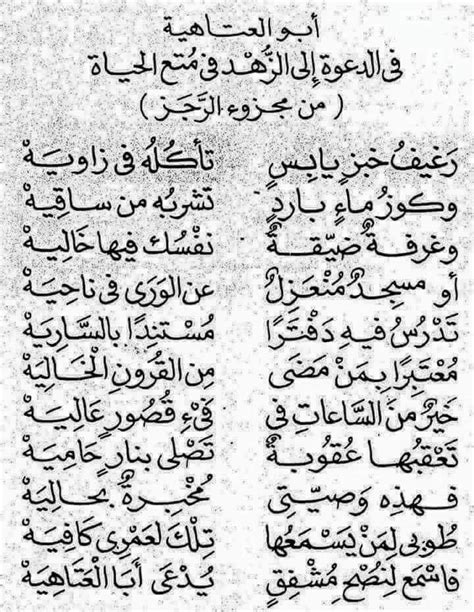 أبو العتاهية
في الدعوة إلى الزُّهْد في مُتَع الحياة
( من مجزوء الرَّجَز )
رَغيفُ خبزٍ يابسٍ تأكلُه في زاويَهْ
وكوزُ ماءٍ باردٍ تشربُه من ساقيهْ
وغرفةٌ ضيّقةٌ نفسُك فيها خَاليهْ
أو مسجدٌ مُنْعَزلٌ عن الوَرَى في ناحيَهْ
تَدْرُسُ فيه دَفْتَرًا مُسْتنِدًا بالسَّاريَهْ
مُعْتبرًا بِمَنْ مَضَى مِن القُرونِ الخَاليَهْ
خَيْرٌ منَ السَّاعاتِ في فَيْءِ قُصُورٍ عَاليَهْ
تَعْقبُها عُقوبةٌ تَصْلَى بنارٍ حَاميَهْ
فهذه وَصيّتي مُخْبِرةٌ بحاليَهْ
طُوبى لِمَنْ يَسْمَعُها تِلْكَ لَعَمْرى كَافيَهْ
فاسْمَع لِنُصْحِ مُشْفِقٍ يُدْعَى أبَا العَتَاهيَهْ